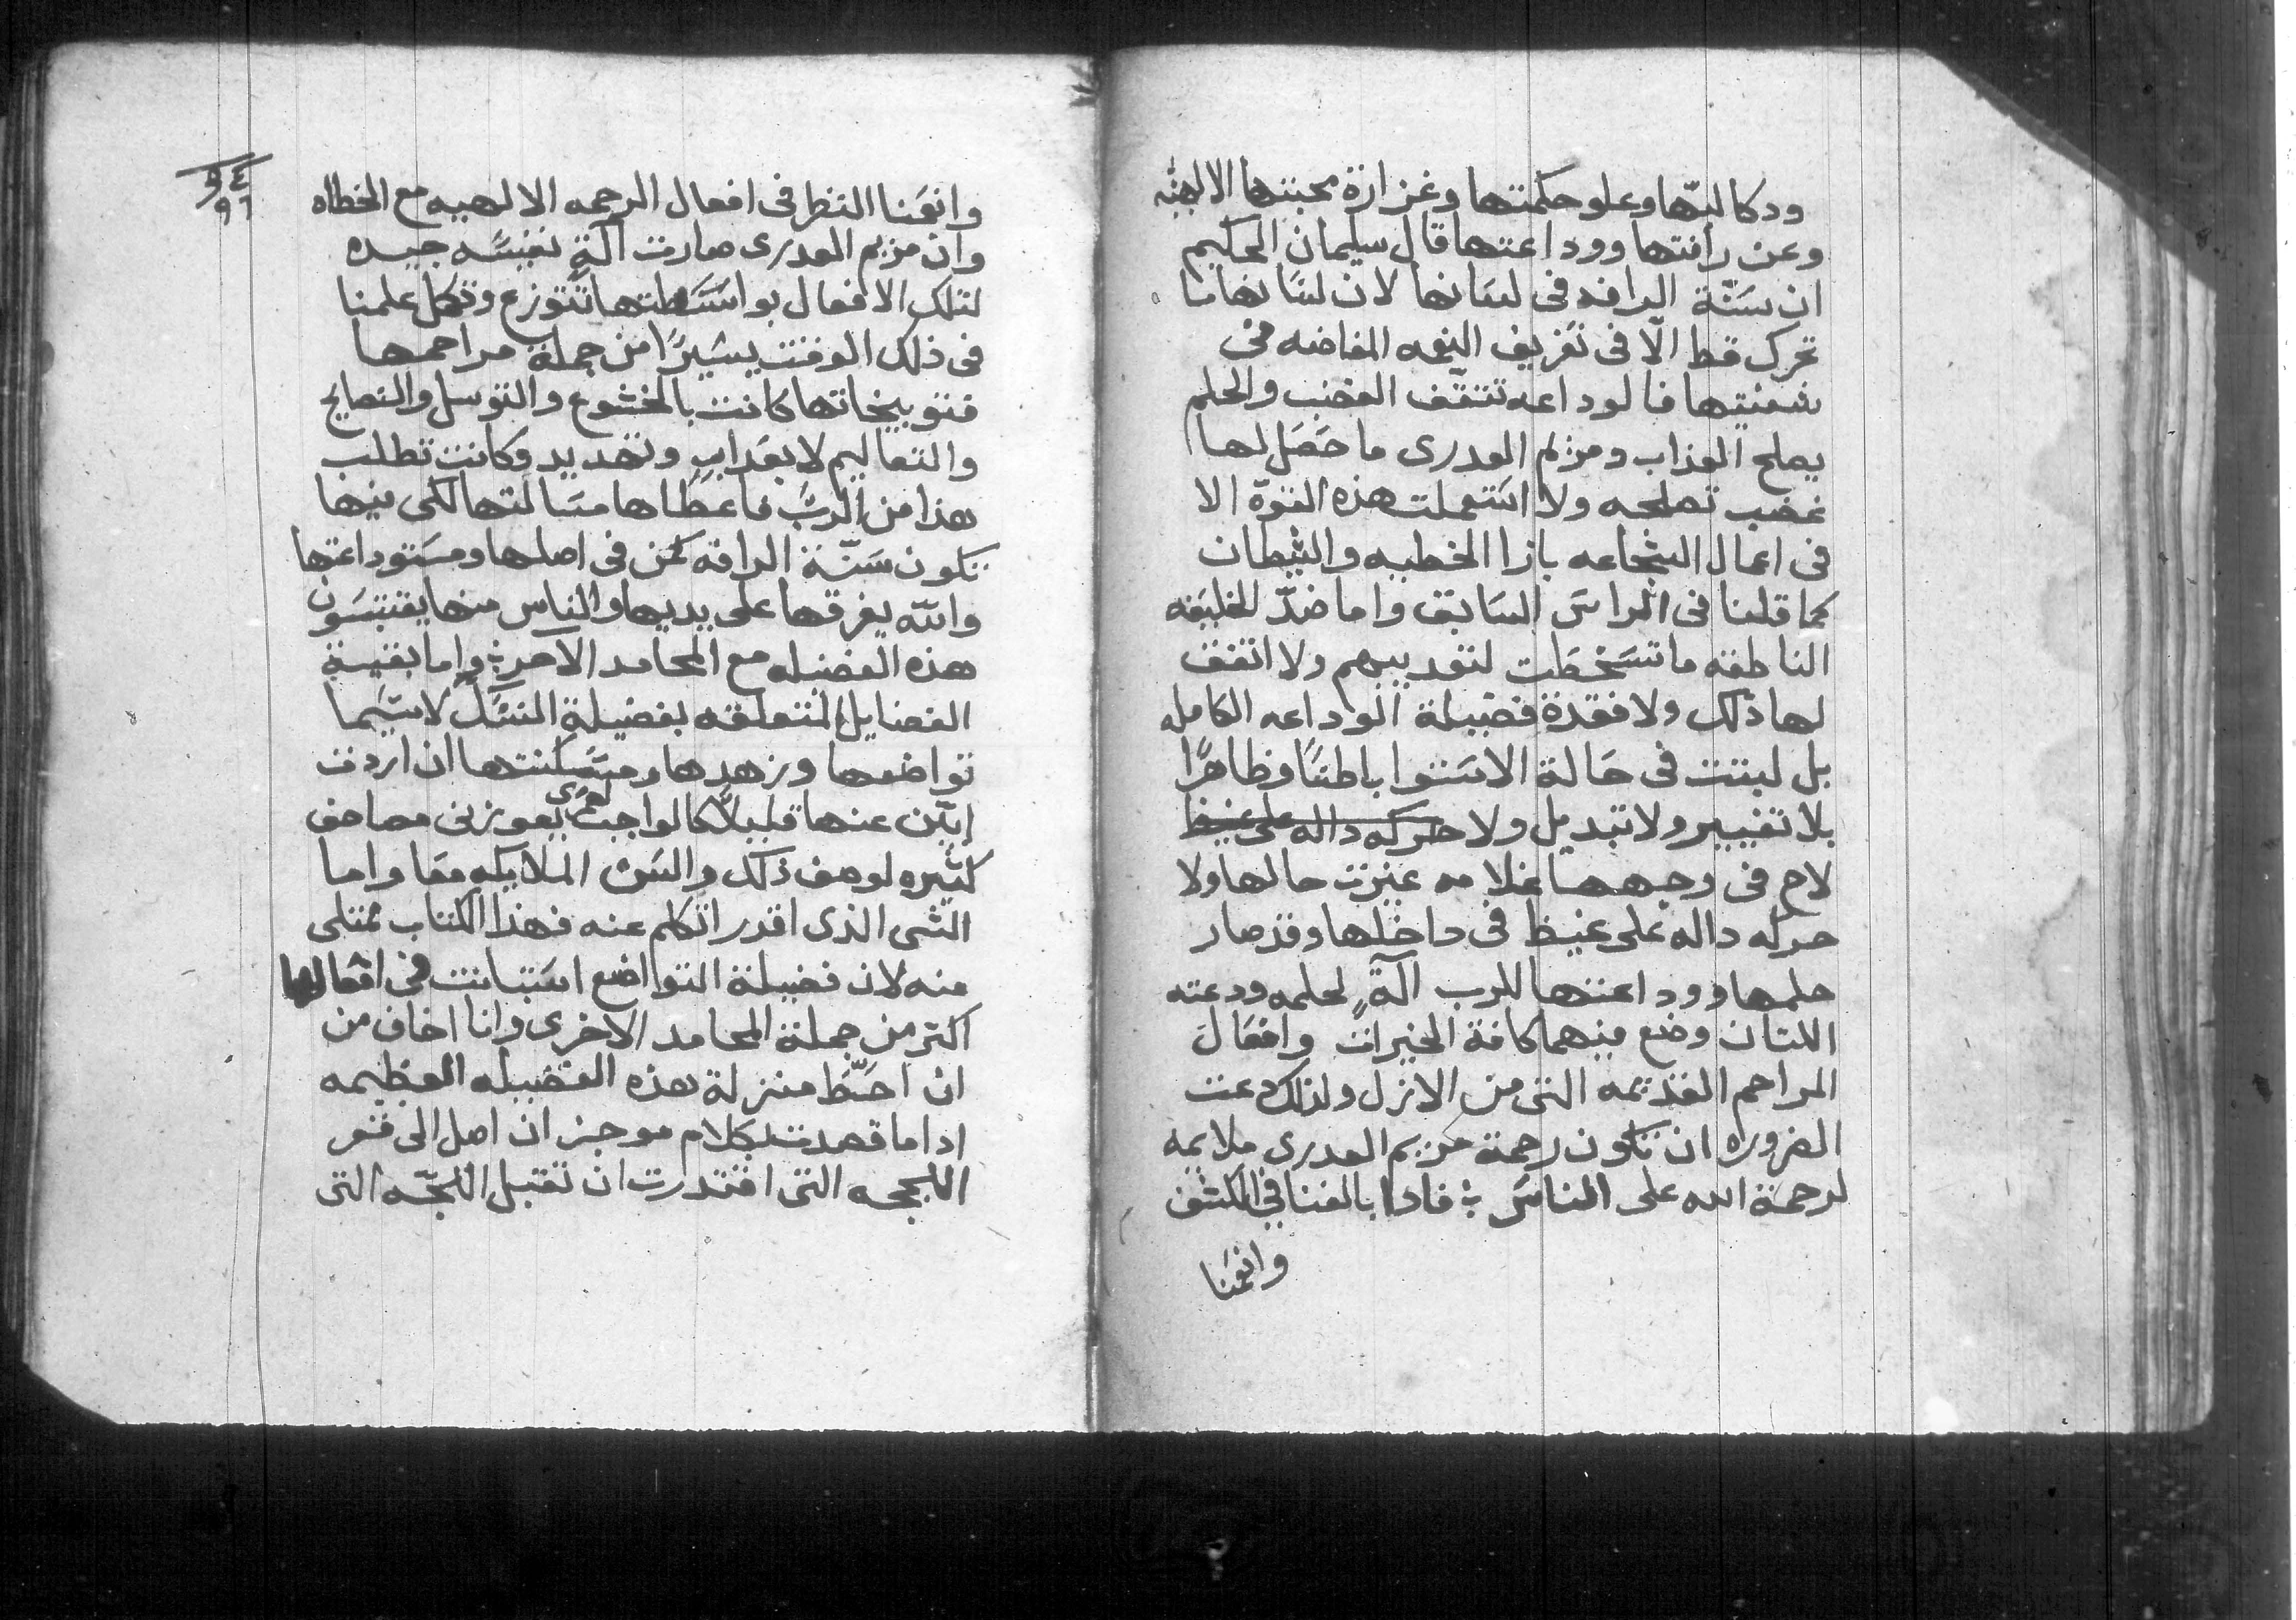 ودكا لبّها وعلو حكمتها وغزارة محبتها الالهيه
وعن رافتها ووداعتها قال سليمان الحكيم
ان سَنّة الرافه فى لسَانها لان لسَانها ما
تحرك قط الّا فى تَفريق النِعمه المفاضه فى
شفتيها فالوداعه تثقف الغضب والحلم
يصلح العذاب ومريم العدرى ما حَصَل لها
غضب تصلحه ولا استَعملت هذه القوّة الا
فى اعمال الشجاعه بازا الخطيه والشيطان
كما قلنا فى الراسَ السَابق واما ضدّ الخليقه
الناطقه ما تسَخطَت لتعديبهم ولا اتفق
لها ذلك ولا فقدة فضيلة الوداعه الكامله
بل لبتت فى حَالة الاستَوا باطنًا وظاهرًا
بلا تغيير ولا تبديل ولا حركه داله على غيظ
لاح فى وجهها علامه غيرت حالها ولا
حركه داله على غيظ فى داخلها وقد صار
حلمها ووداعتها للرب آلةٍ لحلمه ودعته
اللتان وضع فيهما كافة الخيرات وافعَال
المراحم القديمه التى من الازل ولذلك دعت
الضروره ان تكون رحمة مريم العدرى ملايمه
لرحمة الله على الناسَ ⁘ فادا بالغنا فى الكشف
وانعمَنا
٩٤
٩٦
وانعَمنا النظر فى افعال الرحمه الالهيه مع الخطاه
وان مريم العدرى صارت آلةٍ نفيسَه جيده
لتلك الافعال بواسَطتها تتوزع وتكمل علمنا
فى ذلك الوقت يسَيرًا من جملة مراحمها
فتوبيخاتها كانت بالخشوع والتوسل والنصايح
والتعاليم لا بعَدابٍ وتهديد وكانت تطلب
هذا من الربّ فاعطَاها مسَالتها لكى فيها
تكون سَنّة الرافة كمن فى اصلها ومسَتوداعتها
والله يفرقها على يديها والناس منها يقتبسَون
هذه الفضله مع المحامد الآخر ⁘ واما بقية
الفضايل المتعلقه بفضيلة النسَك لاسيَما
تواضعها وزهدها ومسَكنتها ان اردت
ابيّن عنها قليلًا كالواجب لعمرى يعوزنى مصاحف
كثيره لوصف ذلك والسَن الملايكه معَا واما
الشى الذى اقدر اتكلم عنه فهذا الكتاب ممتلى
منه لان فضيلة التواضع استَبانت فى افعالها
اكتر من جملة المحامد الاخرى وانا اخاف من
ان احَطّ منزلة هذه الفضيله العظيمه
ادا ما قصدت بكلام موجز ان اصل الى قعر
اللججه التى اقتدرت ان تقبل اللجّه التى